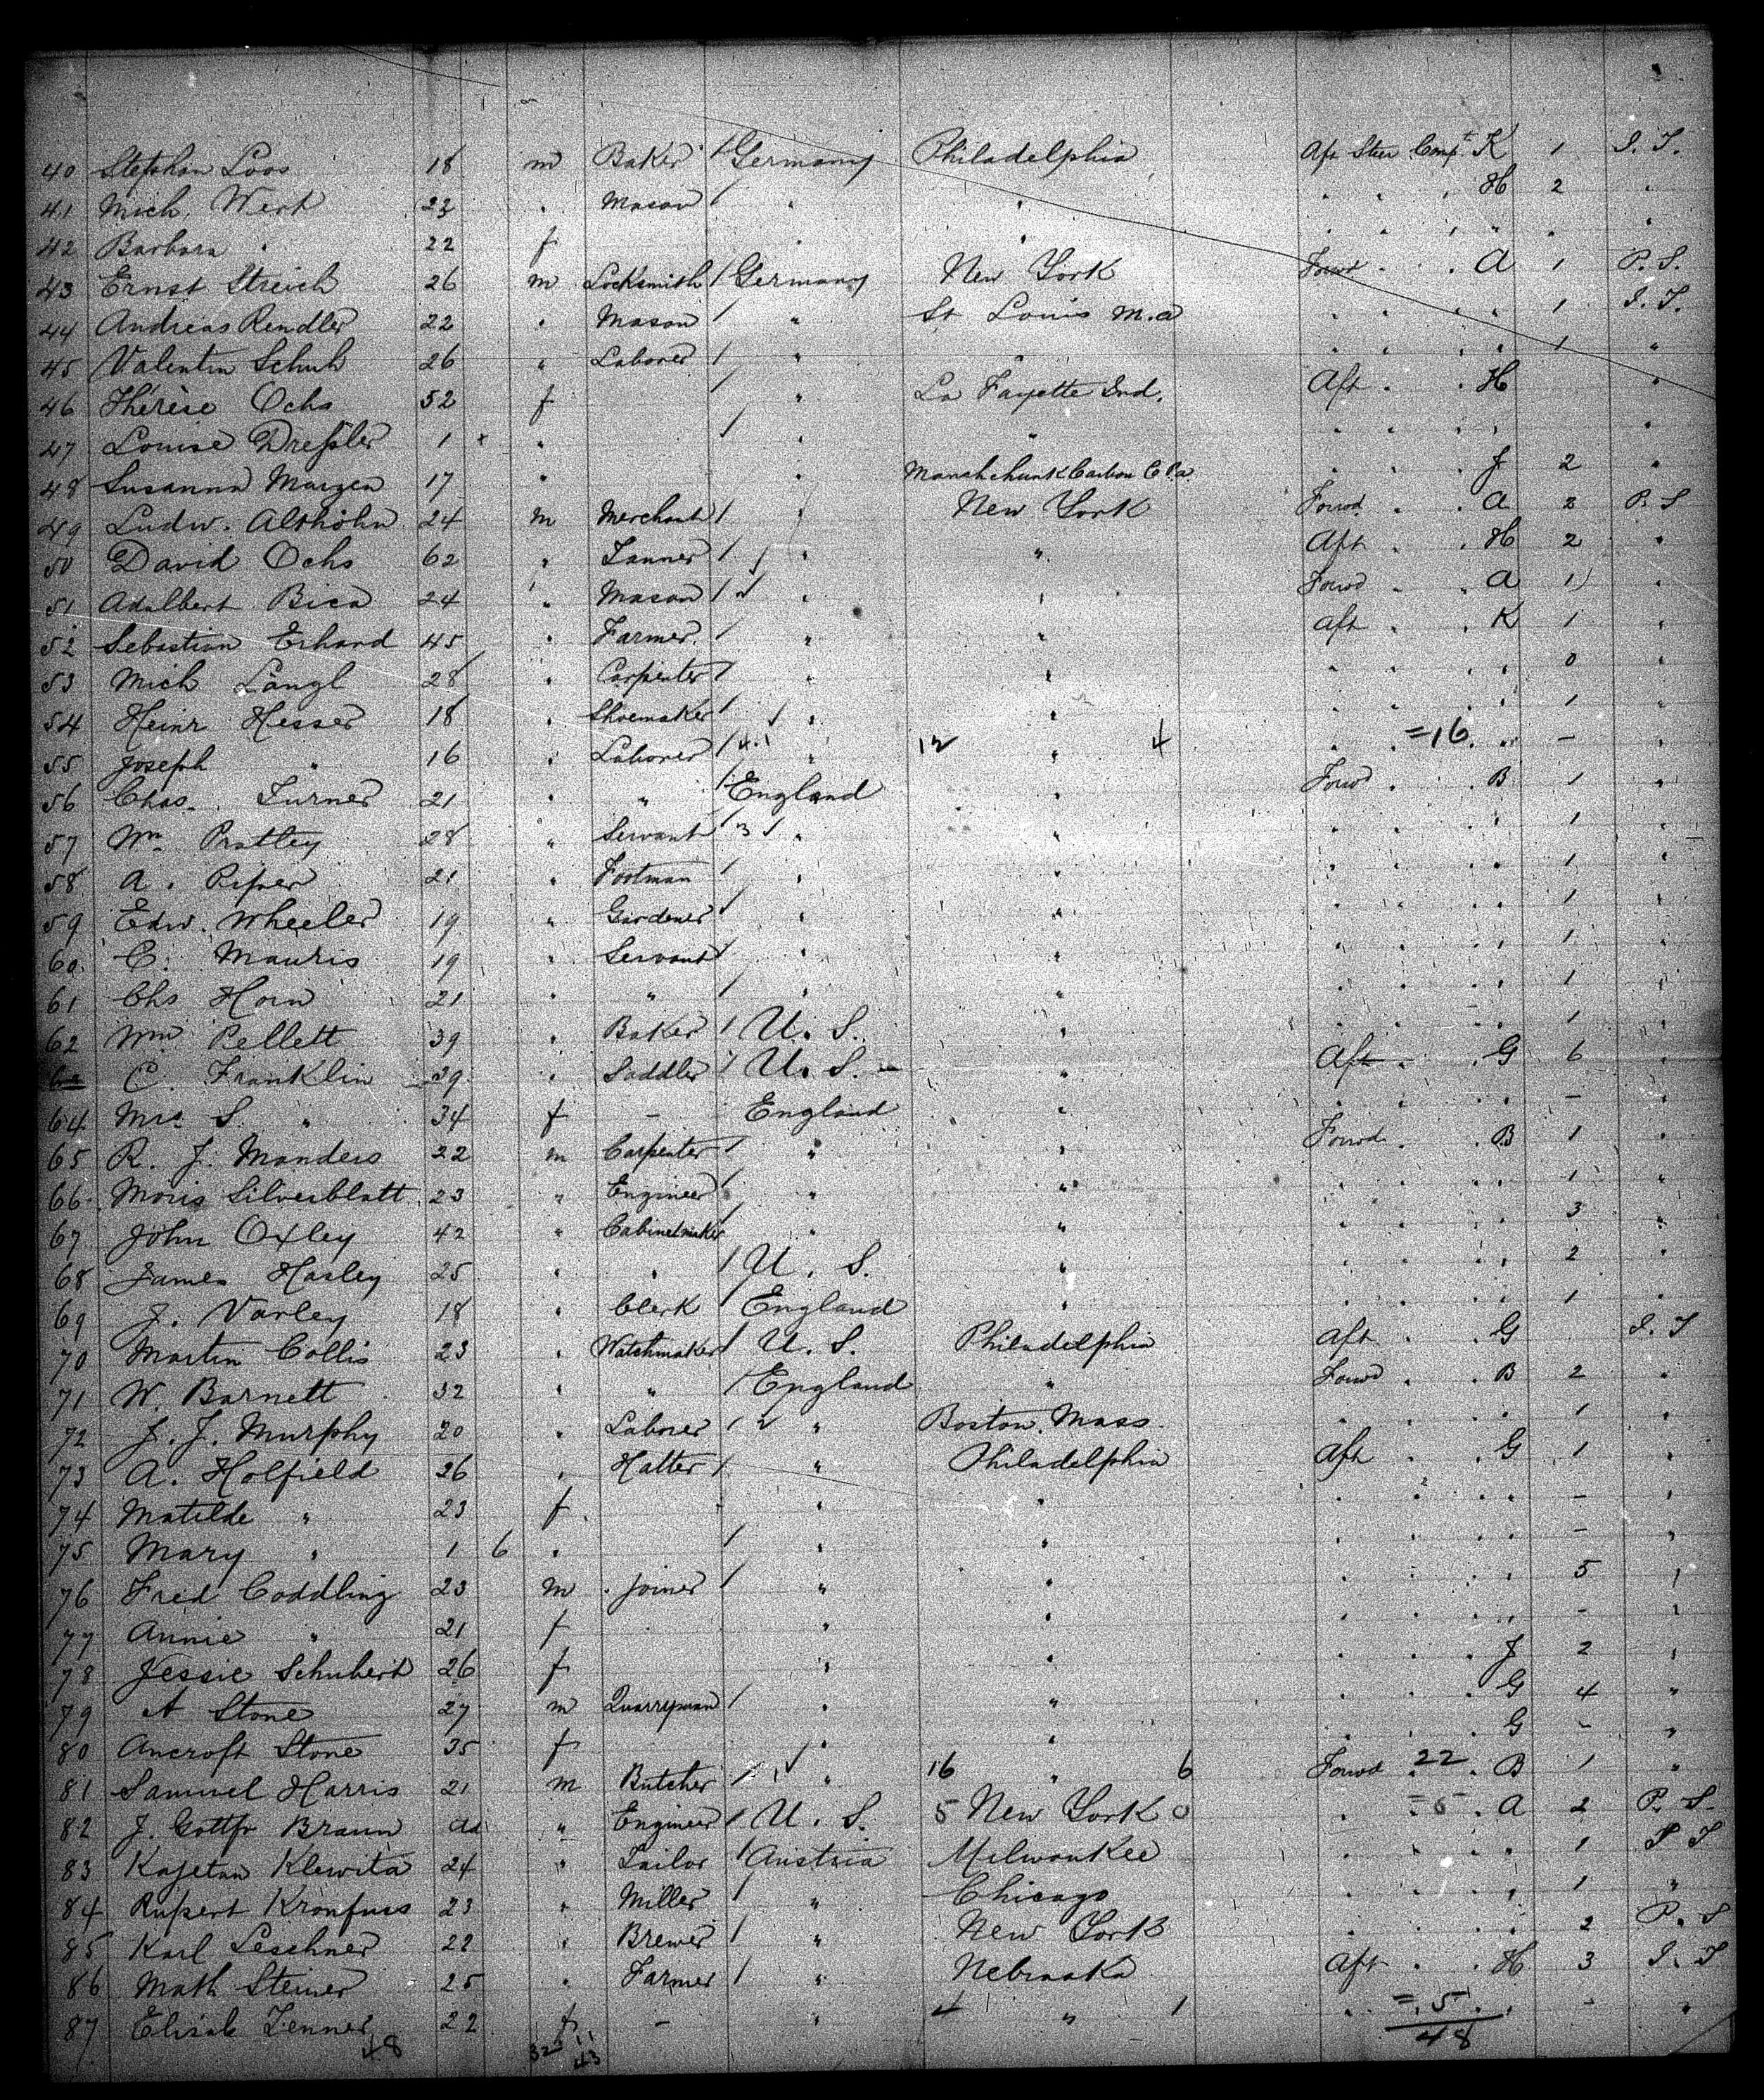 40 Stephan Loos 18 m Baker Germany Philadelphia Aft Steer. Compt K 1 I. T.
41 Mich. Wert 23 " Mason " " " " " H 2 "
42 Barbara " 22 f " " " " " " " "
43 Ernst Streich 26 m Locksmith Germany New York Forwd " " A 1 P. S.
44 Andreas Rendler 22 " Mason " St Louis M.a " " " " 1 I. T.
45 Valentin Schuh 26 " Laborer " " " " " " 1 "
46 Thérèse Ochs 52 f " La Fayette Ind. Aft " " H "
47 Louise Dreßler 1 " " " " " " " "
48 Susanna 17 " " Carbon C Pa " " " J 2 "
49 Ludw. Althöhn 24 m Merchant " New York Forwd " " A 2 P. S
50 David Ochs 62 " Tanner " " Aft " " H 2 "
51 Adalbert Bica 24 " Mason " " Forwd " " A 1 "
52 Sebastian Erhard 45 " Farmer " " Aft " " K 1 "
53 Mich Längl 28 " Carpenter " " " " " " 0 "
54 Heinr Hesser 18 " Shoemaker " " " " " " 1 "
55 Joseph " 16 " Laborer " 12 " 4 " " =16 " - "
56 Chas. Turner 21 " " England " Forwd " " B 1 "
57 Wm Pratley 28 " Servant " " " " " " 1 "
58 A. Piper 21 " Footman " " " " " " 1 "
59 Edw. Wheeler 19 " Gardener " " " " " " 1 "
60 C. Mauris 19 " Servant " " " " " " 1 "
61 Chs Horn 21 " " " " " " " " 1 "
62 Wm Pellett 39 " Baker U. S. " " " " " 1 "
63 C. Franklin 39 " Saddler U. S. " Aft " " G 6 "
64 Mrs S. " 34 f - England " " " " " - "
65 R. J. Manders 22 m Carpenter " " Forwd " " B 1 "
66 Moris Silverblatt 23 " Engineer " " " " " " 1 "
67 John Oxley 42 " Cabinetmaker " " " " " " 3 "
68 James Hasley 25 " " U. S. " " " " " 2 "
69 J. Varley 18 " Clerk England " " " " " 1 "
70 Martin Collis 23 " Watchmaker U. S. Philadelphia Aft " " G I. T
71 W. Barnett 32 " " England " Forwd " " B 2 "
72 J. J. Murphy 20 " Laborer " Boston. Mass. " " " " 1 "
73 A. Holfield 26 " Hatter " Philadelphia Aft " " G 1 "
74 Matilde " 23 f " " " " " " - "
75 Mary " 1 6 " " " " " " " - "
76 Fred Coddling 23 m Joiner " " " " " " 5 "
77 Annie " 21 f " " " " " " - "
78 Jessie Schubert 26 f " " " " " J 2 "
79 A Stone 27 m Quarryman " " " " " G 4 "
80 Ancroft Stone 35 f " " " " " G - "
81 Samuel Harris 21 m Butcher " 16 " 6 Forwd 22 " B 1 "
82 J. Gottfr Braun ad " Engineer U. S. 5 New York 0 " =5 " A 2 P. S.
83 Kajetan Klewita 24 " Tailor Austria Milwaukee " " " " 1 I T
84 Rupert Kronfuss 23 " Miller " Chicago " " " " 1 "
85 Karl Leschner 22 " Brewer " New York " " " " 2 P. S
86 Math Steiner 25 " Farmer " Nebraska Aft " " H 3 I. T
87 Elisab Zenner 22 f - " 4 " 1 " =5 " - "
48 32 11 43 48